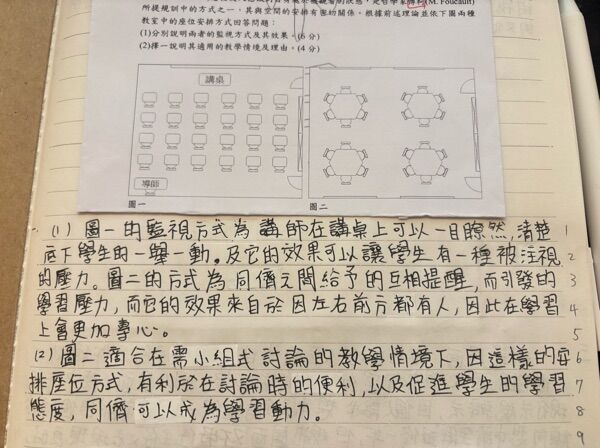 所提規訓中的方式之一，其與空間的安排有密切關係。根據前述理論並依下圖兩種
教室中的座位安排方式回答問題：
(1)分別說明兩者的監視方式及其效果。(6 分)
(2)擇一說明其適用的教學情境及理由。(4 分)
講桌
導師
圖一
圖二
(1) 圖一的監視方式為講師在講桌上可以一目瞭然,清楚 1
底下學生的一舉一動。及它的效果可以讓學生有一種被注視 2
的壓力。圖二的方式為同儕之間給予的互相提醒,而引發的 3
學習壓力,而它的效果來自於因左右前方都有人,因此在學習 4
上會更加專心。 5
(2) 圖二適合在需小組式討論的教學情境下,因這樣的安 6
排座位方式,有利於在討論時的便利,以及促進學生的學習 7
態度,同儕可以成為學習動力。 8
9